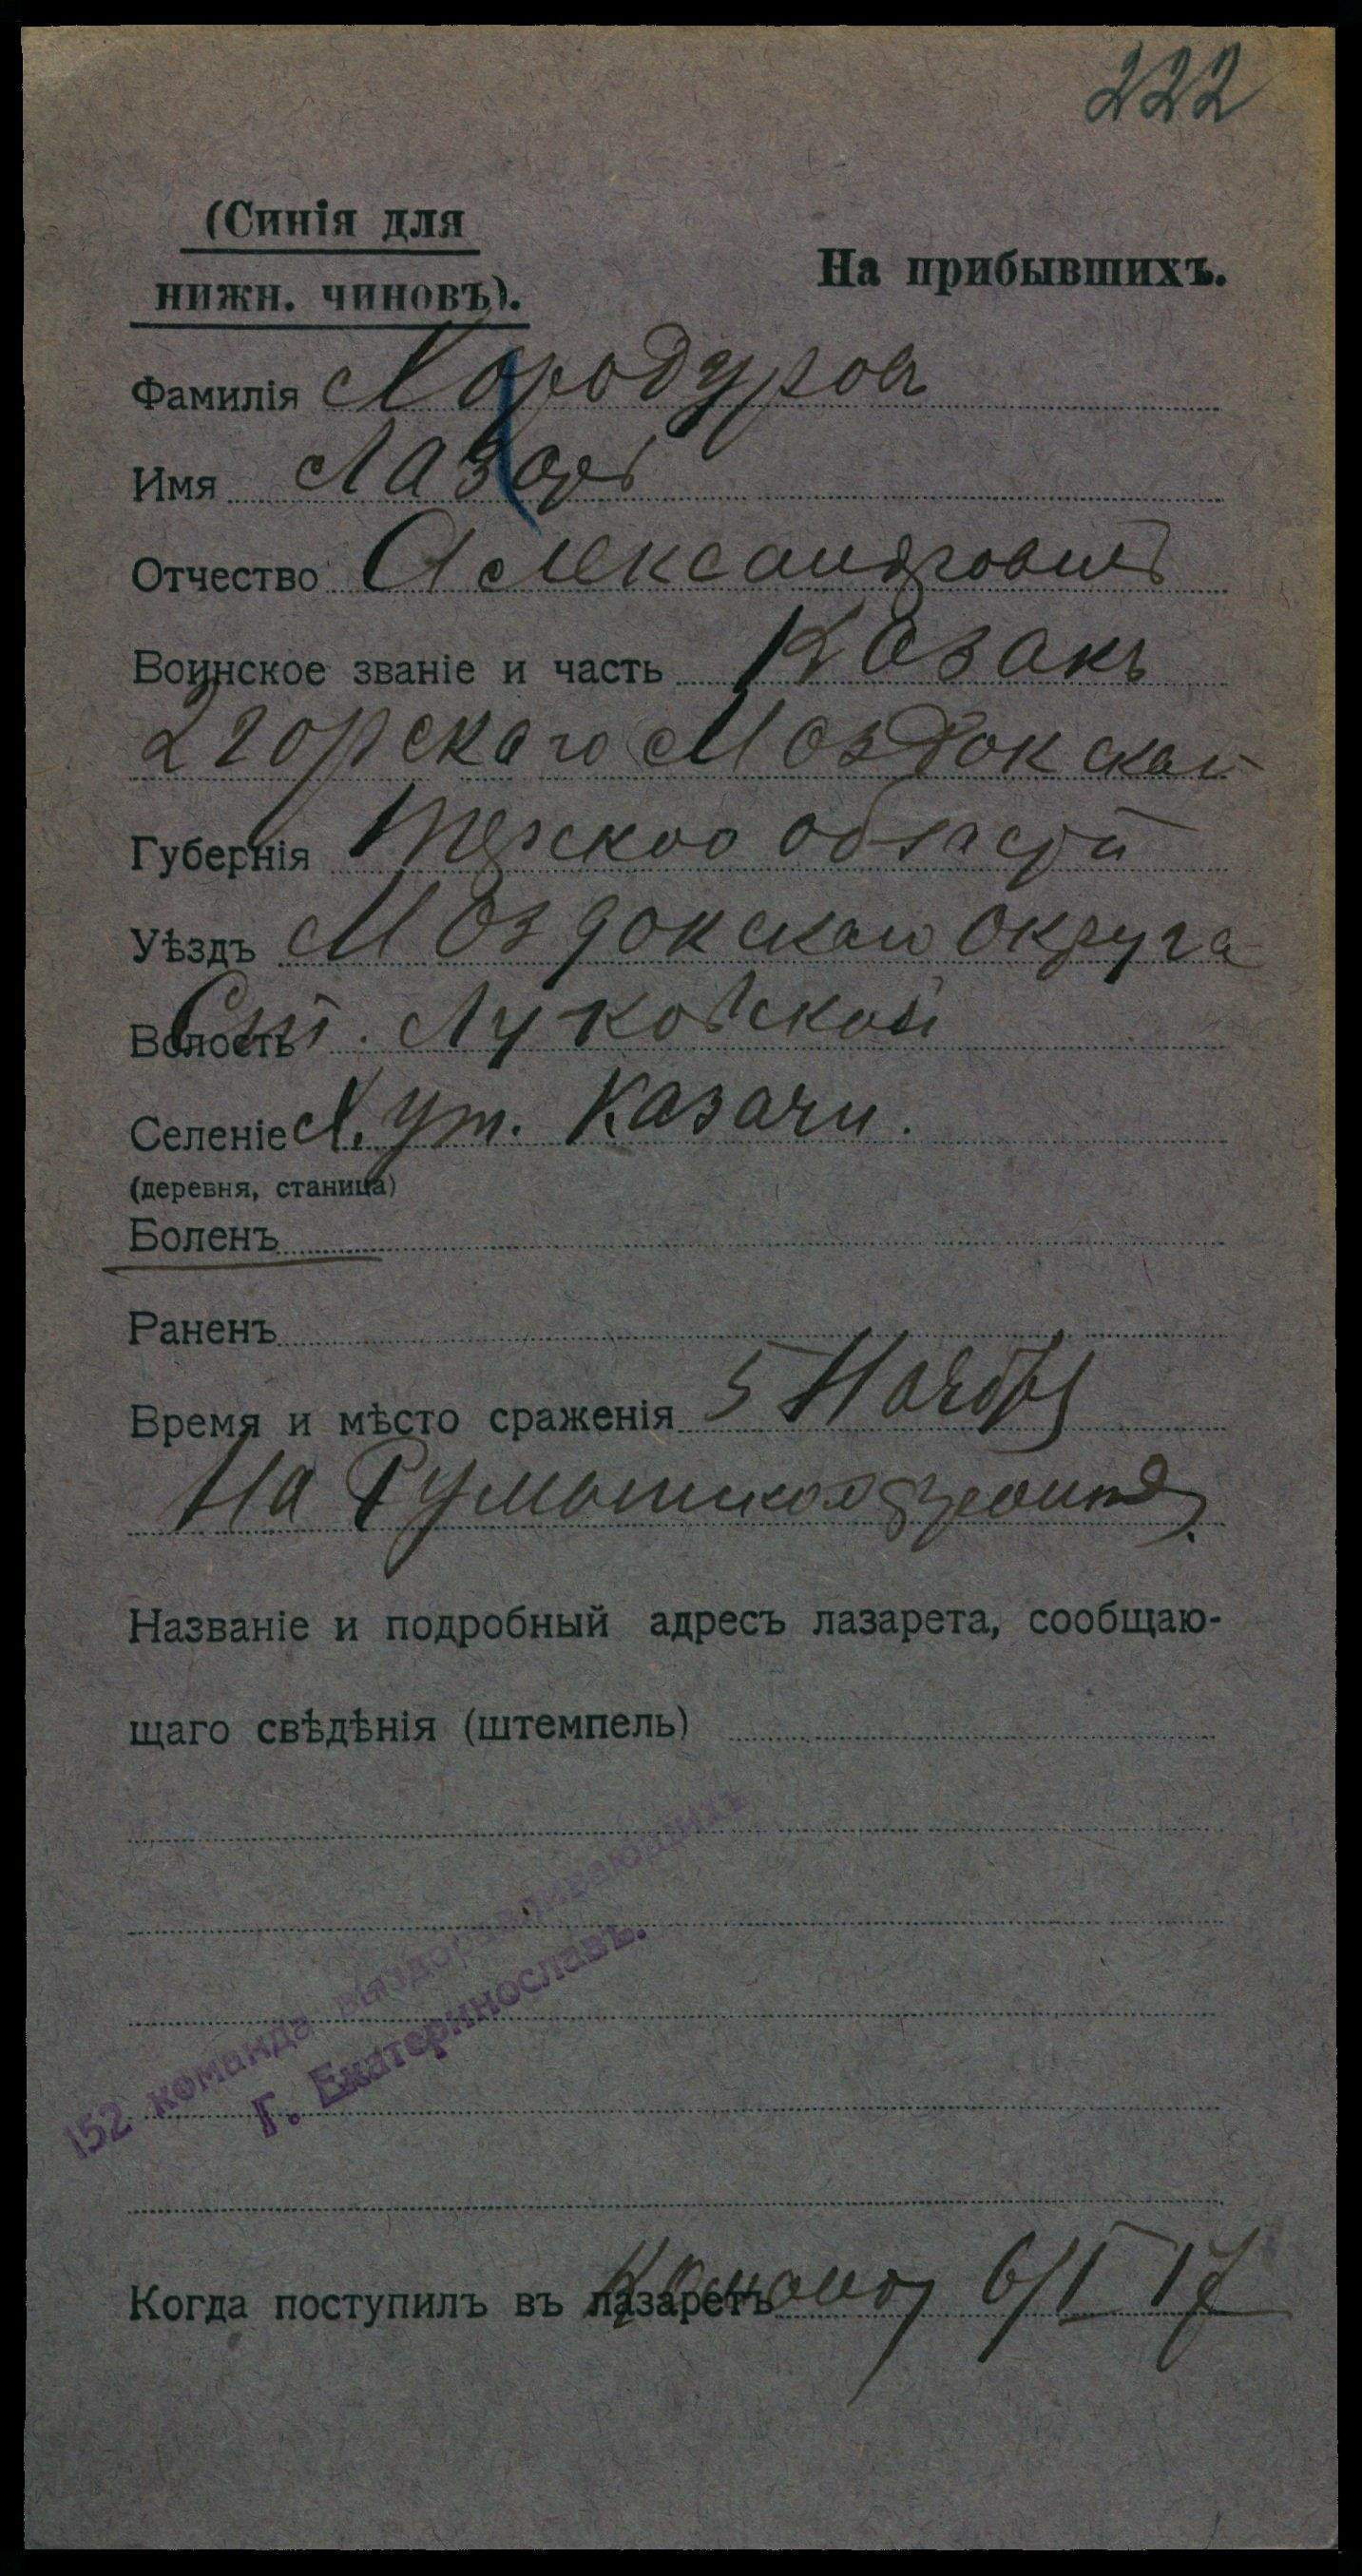 222
(Синія для
нижн. чиновъ).
На прибывшихъ.
Фамилія Хородуровъ
Имя Лазарь
Отчество Александровичъ
Воинское званіе и часть Козакъ
2 горскаго Моздокскаго
Губернія Терской области
Уѣздъ Моздокскаго округа
Волость Ст. Луковской
Селеніе Хут. Казачи.
(деревня, станица)
Боленъ
Раненъ
Время и мѣсто сраженія 5 Ноября
На Румынском фронтѣ.
Названіе и подробный адресъ лазарета, сообщаю-
щаго свѣдѣнія (штемпель)
152 команда выздоравливающихъ
Г. Екатеринославъ.
Когда поступилъ въ лазаретъ Команду 6/I 17